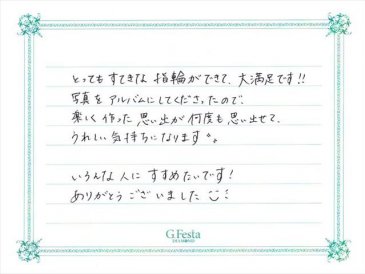 とってもすてきな指輪ができて、大満足です!!
写真をアルバムにしてくださったので、
楽しく作った思い出が何度も思い出せて、
うれしい気持ちになります。
いろんな人にすすめたいです!
ありがとうございました
G.Festa
DIAMOND